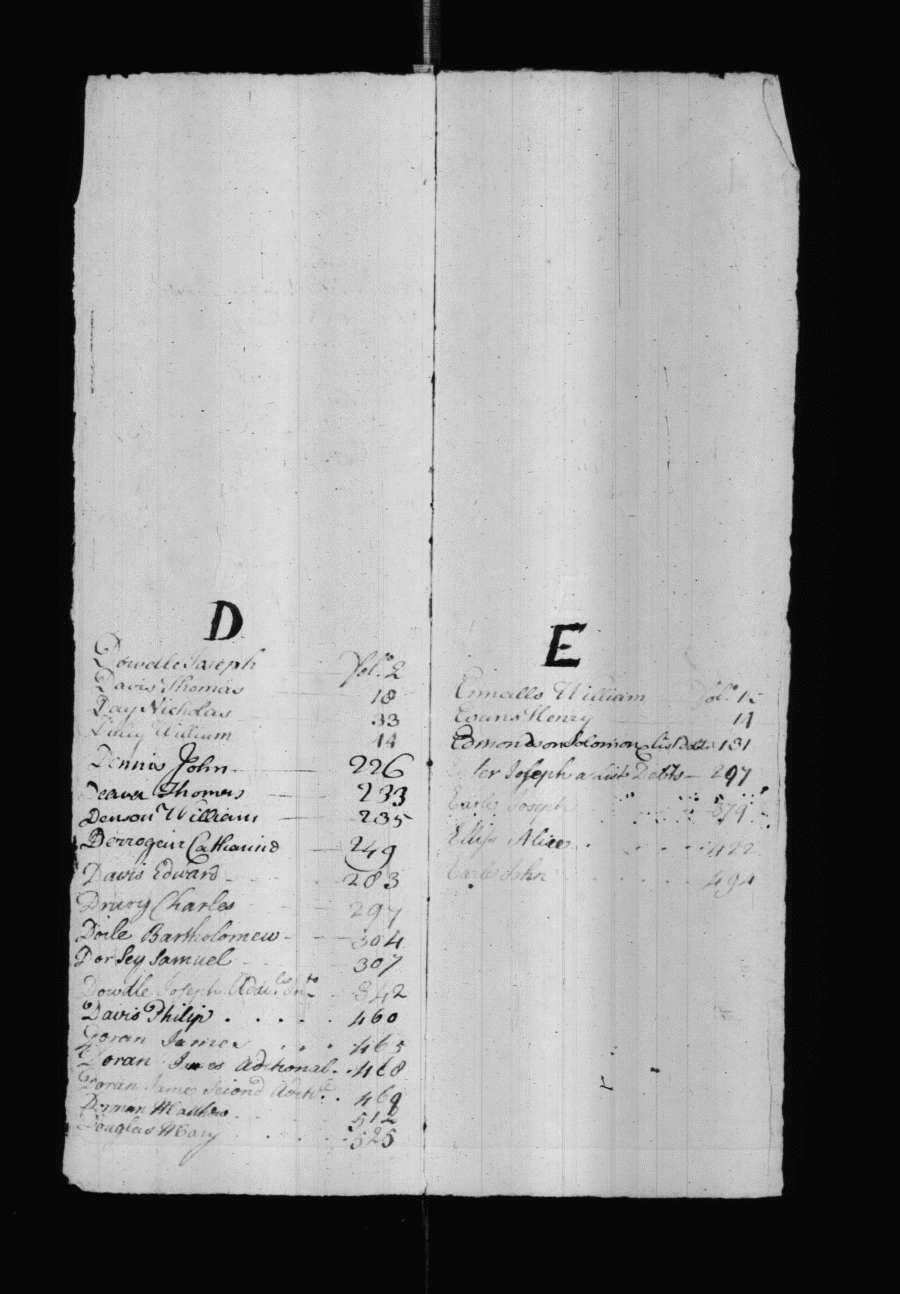 D
Dowdle Joseph Fol.º 2
Davis Thomas 18
Day Nicholas 33
William 44
Dennis John 226
Deaver Thomas 233
Denson William 235
Derrogein Catharine 249
Davis Edward 283
Drury Charles 297
Doile Bartholomew 304
Dorsey Samuel 307
Dowdle Joseph Addl. 342
Davis Philip . . . . . 460
Doran James . . . 465
Doran James Aditional . . 468
Doran James Second . 469
Matthew 512
Douglas Mary . . . . 525
E
Ennalls William Fol.º 15
Evans Henry 14
Edmondson Solomon a list Debts 131
Joseph a list Debts 297
Earle Joseph 379
Ellis Alice . . . . . 422
Earle John . . . . 494